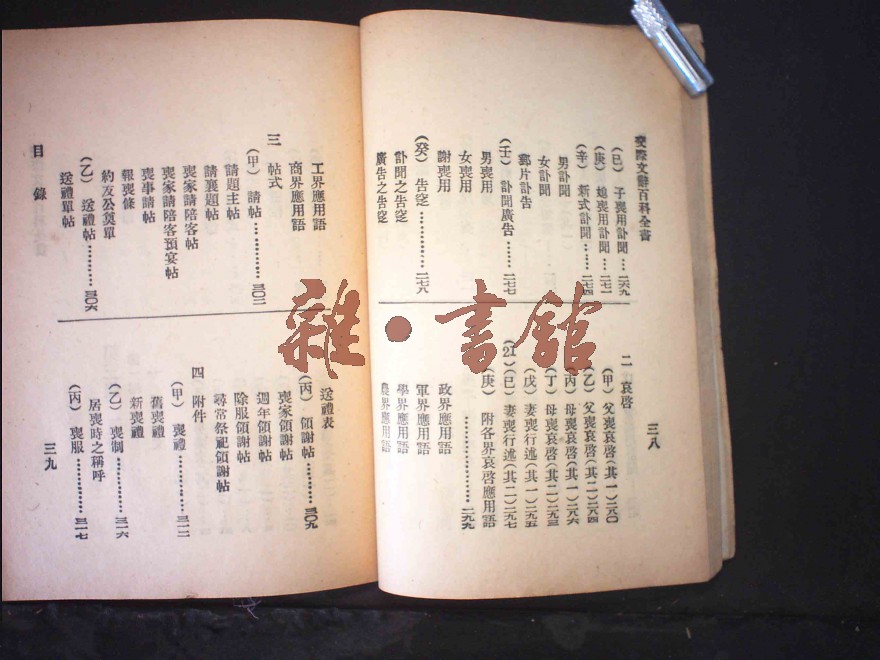 交際文辭百科全書
(巳) 子喪用訃聞…二六九
(庚) 媳喪用訃聞…二七一
(辛) 新式訃聞……二七四
男訃聞
女訃聞
郵片訃告
(壬) 訃聞廣告……二七七
謝喪用
女喪用
男喪用
(癸) 告窆…………二七八
訃聞之告窆
廣告之告窆
二 哀啓
(甲) 父喪哀啓(其一)二八〇
(乙) 父喪哀啓(其二)二八四
(丙) 母喪哀啓(其一)二八六
(丁) 母喪哀啓(其二)二九三
(戊) 妻喪行述(其一)二九五
(21)(巳) 妻喪行述(其二)二九七
(庚) 附各界哀啓應用語
……………………二九九
政界應用語
軍界應用語
學界應用語
農界應用語
三八
工界應用語
商界應用語
三 帖式
(甲) 請帖…………三〇二
請題主帖
請襄題帖
喪家請陪客帖
喪家請陪客預宴帖
喪事請帖
報喪條
約友公奠單
(乙) 送禮帖………三〇六
送禮單帖
目錄
送禮表
(丙) 領謝帖………三〇九
喪家領謝帖
週年領謝帖
除服領謝帖
尋常祭祀領謝帖
四 附件
(甲) 喪禮…………三一二
舊喪禮
新喪禮
(乙) 喪制…………三一六
居喪時之稱呼
(丙) 喪服…………三一七
三九
雜·書館